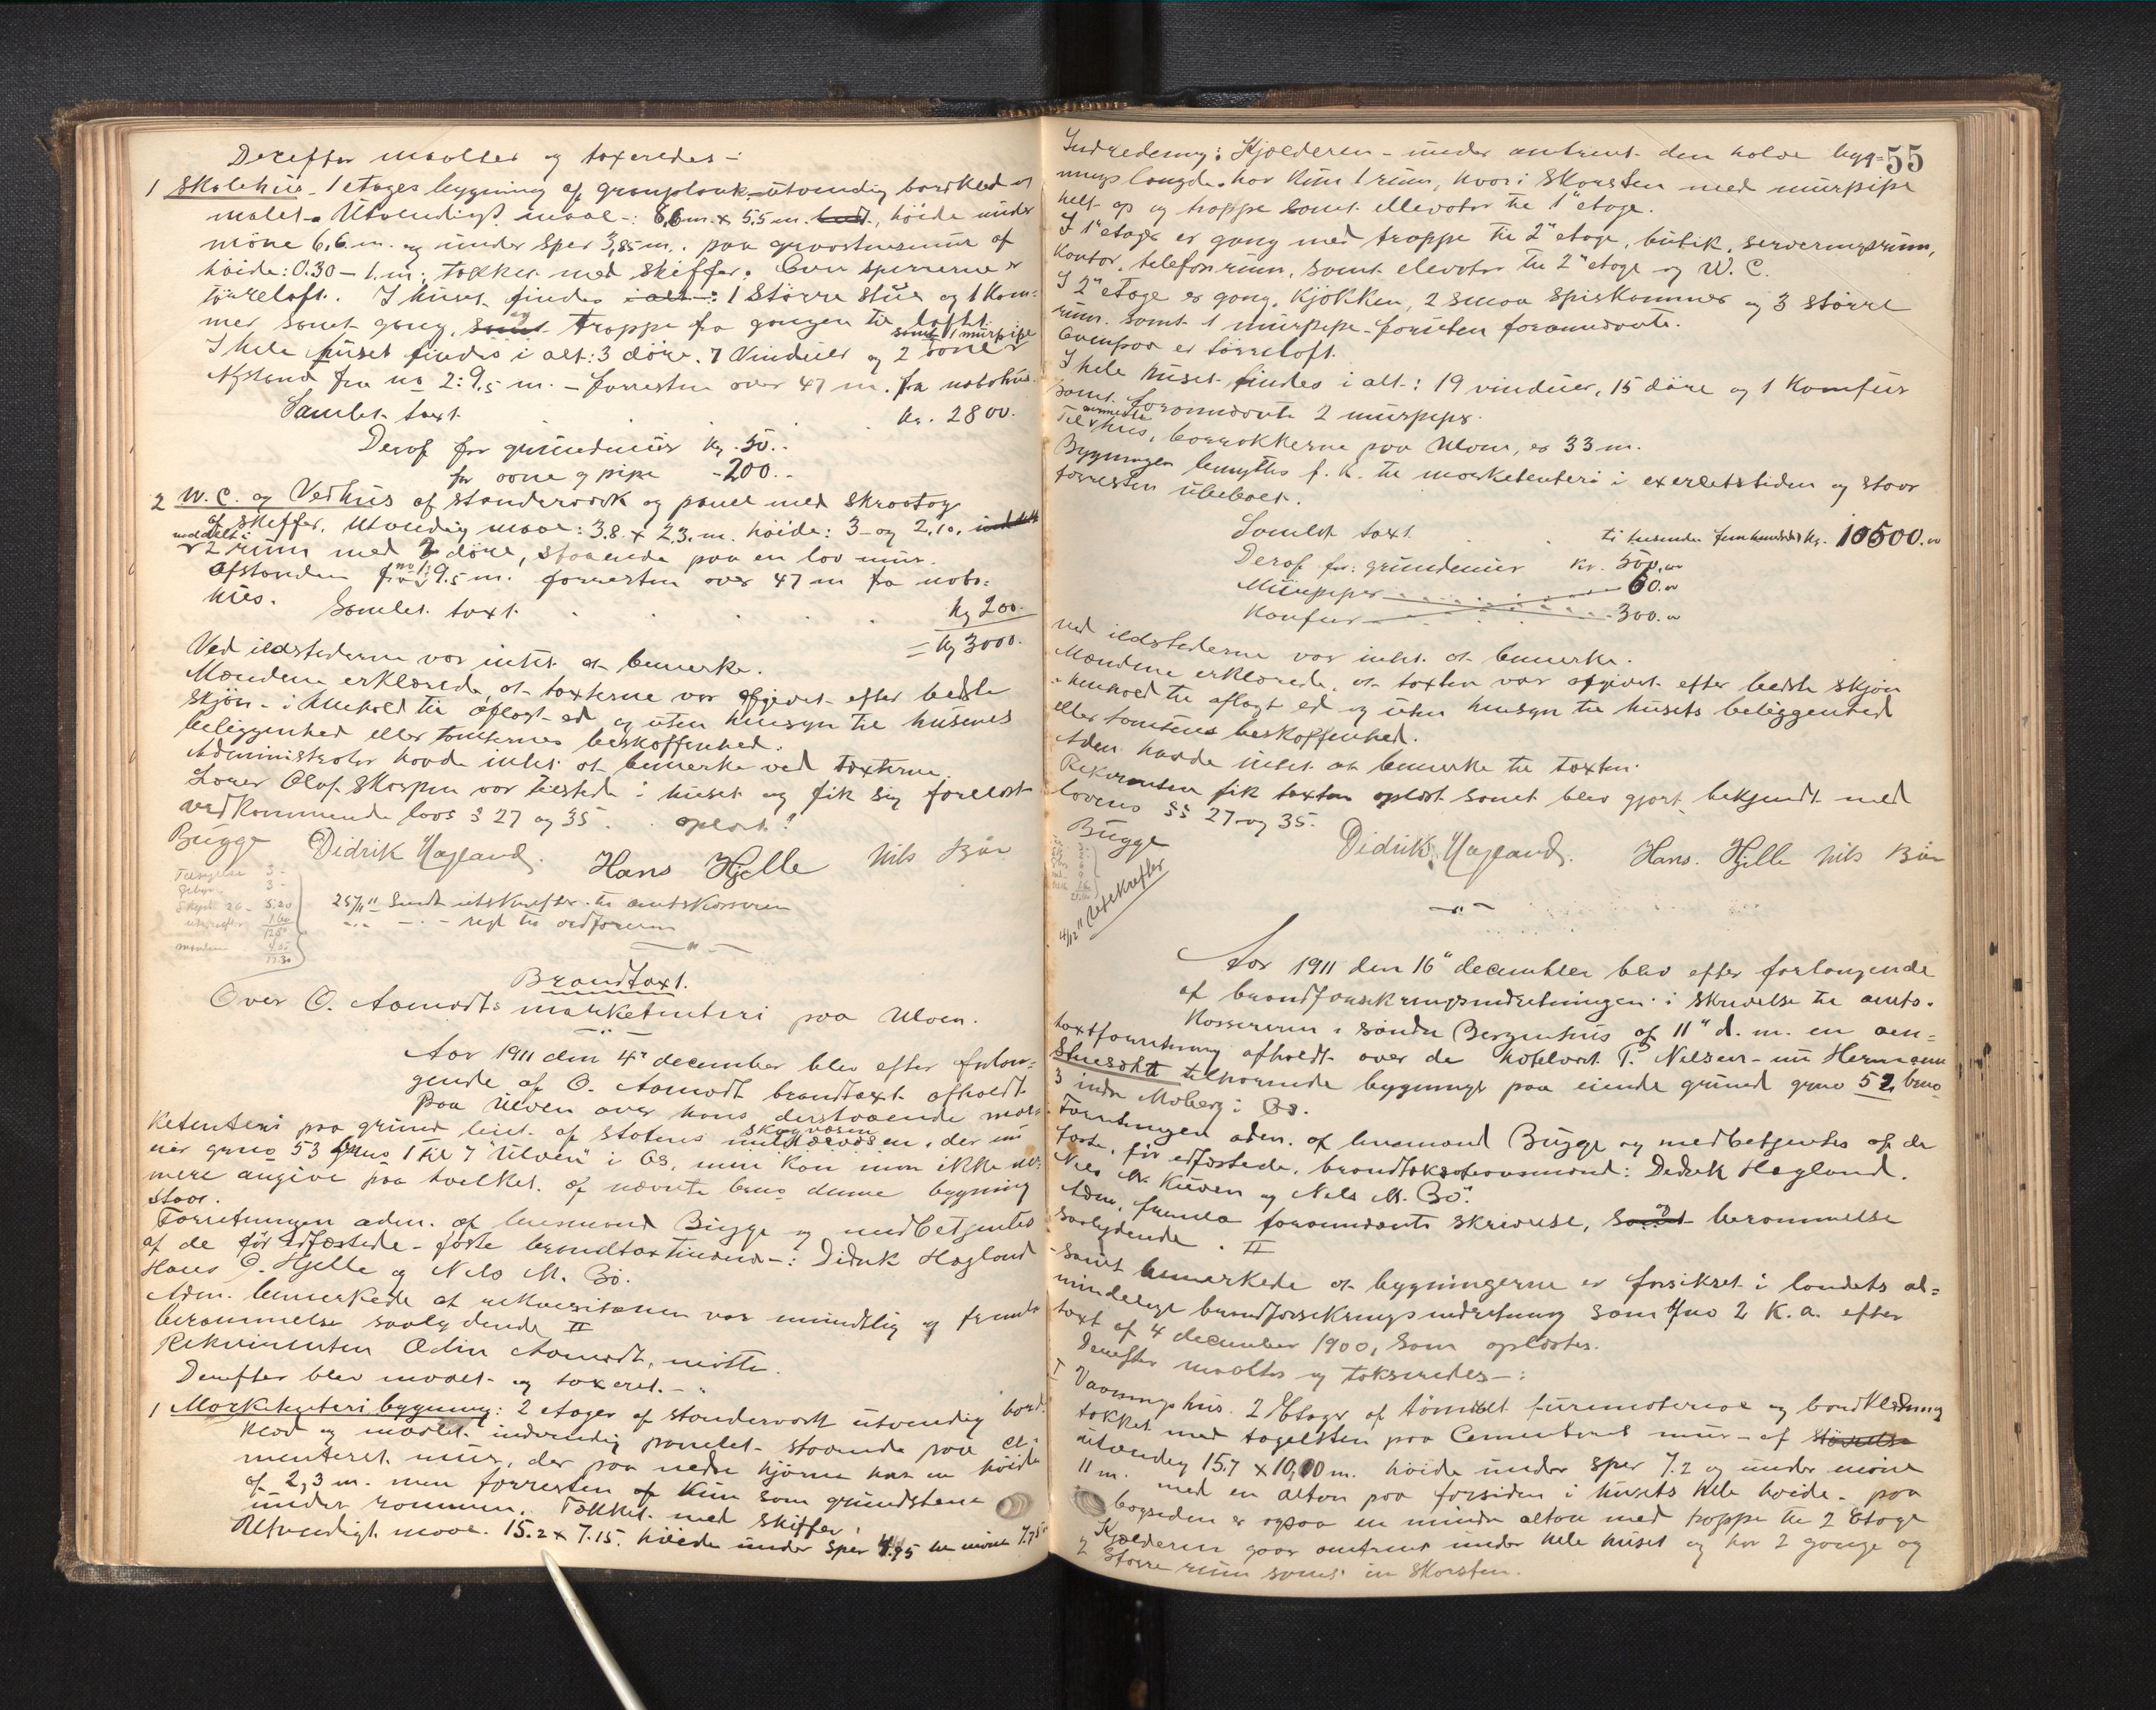 Derefter maaltes og taxeredes -
1 Skolehus - 1 etages bygning af granplank - utvendig bordklæd og
malet. Utvendigt maal -: 8,6 m. x 5.5 m. høide under
møne 6,6 m. og under sper 3,85 m. paa graastensmur af
høide: 0.30 - 1. m; tækket med skiffer. Over sperrerne er
tørreloft. I huset findes i alt: 1 større stue og 1 kam-
mer samt gang, og trappe fra gangen til loftet.
samt 1 murpipe
I hele huset findes i alt: 3 døre, 7 vinduer og 2 ovne
Afstand fra no 2: 9,5 m. - forresten over 47 m. fra nabohus.
Samlet taxt kr. 2800.
Deraf for grundmur kr. 50.-
for ovne og pipe - 200.-
2 W.C. og Vedhus af standerverk og panel med skraatag
af skiffer. Utvendig maal: 3.8 x 2.3. m. høide: 3 - og 2,10.
inddelt i
2 rum med 2 døre, staaende paa en lav mur.
Afstanden fra no 1: 9.5 m. forresten over 47 m fra nabo-
hus. Samlet taxt kr 200.
= kr 3000.
Ved ildstederne var intet at bemerke.
Mændene erklærede, at taxterne var afgivet efter bedste
skjøn - i henhold til aflagt ed og uten hensyn til husenes
beliggenhed eller tomternes beskaffenhed.
Administrator havde intet at bemerke ved taxterne.
Lærer Olaf Skorpen var tilstede i huset og fik sig forelæst
vedkommende lovs § 27 og 35. oplæst.
Bugge Didrik Hagland. Hans Hjelle Nils Bøe
25/11 11 Sendt utskrifter til amtskassereren
-"- - - regl til ordføreren
Brandtaxt.
Over O. Aamodts marketenteri paa Ulven.
Aar 1911 den 4de december blev efter forlan-
gende af O. Aamodt brandtaxt afholdt
paa Ulven over hans derstaaende mar-
ketenteri paa grund leiet af statens
skogvæsen
militærvæsen, der
eier gno 53 bruno 1 til 7 "Ulven" i Os, men kan man ikke nær-
mere angive paa hvilket af nævnte bruno denne bygning
staar.
Forretningen adm. af lensmand Bugge og medbetjentes
af de før edfæstede - faste brandtaxtmænd -: Didrik Hagland
Hans O. Hjelle og Nils M. Bø.
Adm. bemerkede at rekvisitionen var mundtlig og fremla
berammelse saalydende II
Rekvirenten Odin Aamodt, møtte.
Derefter blev maalt og taxeret. -
1 Marketenteribygning: 2 etager af standerverk utvendig bord-
klæd og malet indvendig panelet - staaende paa ce-
menteret mur, der paa nedre hjørne har en høide
af 2,3 m. men forresten af kun som grundstene
under rommen. Tækket med skiffer.
Utvendigt maal. 15.2 x 7.15. høide under sper 4.95 til møne 7.75
55
Indredning: Kjælderen - under omtrent den halve byg-
nings længde. har kun 1 rum, hvori skorsten med murpipe
helt op og trappe samt ellevator til 1ste etage.
I 1ste etage er gang med trappe til 2den etage, butik, serveringsrum,
kontor, telefonrum, samt elevator til 2den etage og W.C.
I 2den etage er gang, kjøkken, 2 smaa spiskammer og 3 større
rum. samt 1 murpipe - foruten forannævnte.
Ovenpaa er tørreloft.
I hele huset findes i alt: 19 vinduer, 15 døre og 1 komfur
samt forannævnte 2 murpiper.
Til nærmeste hus, barrakkerne paa Ulven, er 33 m.
Bygningen benyttes f. t. til marketenteri i exercertstiden og staar
forresten ubeboet.
Samlet taxt ti tusende femhundrede kr. 10500.00
Deraf for: grundmur kr. 500.00
Murpiper 60.00
Komfur 300.00
Ved ildstederne var intet at bemerke.
Mændene erklærede, at taxten var afgivet efter bedste skjøn
i henhold til aflagt ed og uten hensyn til husets beliggenhed
eller tomtens beskaffenhed.
Adm. havde intet at bemerke til taxten.
Rekvirenten fik taxten oplæst samt blev gjort bekjendt med
lovens §§ 27 og 35.
Bugge Didrik Hagland. Hans. Hjelle Nils Bøe
4/12 11 utskrifter
Aar 1911 den 16de december blev efter forlangende
af brandforsikringsindretningen i skrivelse til amts-
kassereren i søndre Bergenhus af 11te d. m. en om-
taxtforretning afholdt over de hotelvert T. Nilsen - nu Hermann
tilhørende bygninger paa eiende grund gno 52 bruno
3 indre Moberg i Os.
Forretningen adm. af lensmand Bugge og medbetjentes af de
faste, før edfæstede, brandtakstmænd: Didrik Hagland.
Nils N. Kuven og Nils M. Bø.
Adm. fremla forannævnte skrivelse, og berammelse
saalydende II
Samt bemerkede at bygningerne er forsikret i landets al-
mindelige brandforsikringsindretning som No 2 K. a. efter
taxt af 4 december 1900, som oplæstes.
Derefter maaltes og takseredes -:
I Vaaningshus. 2 Etager af tømret furumateriale og bordklædning
tækket med tagelsten paa Cementeret mur - af
utvendig 15.7 x 10,10 m. høide under sper 7.2 og under møne
11 m. med en altan paa forsiden i husets hele høide - paa
bagsiden er ogsaa en mindre altan med trappe til 2 Etage
Kjælderen gaar omtrent under hele huset og har 2 gange og
2 større rum samt en skorsten.